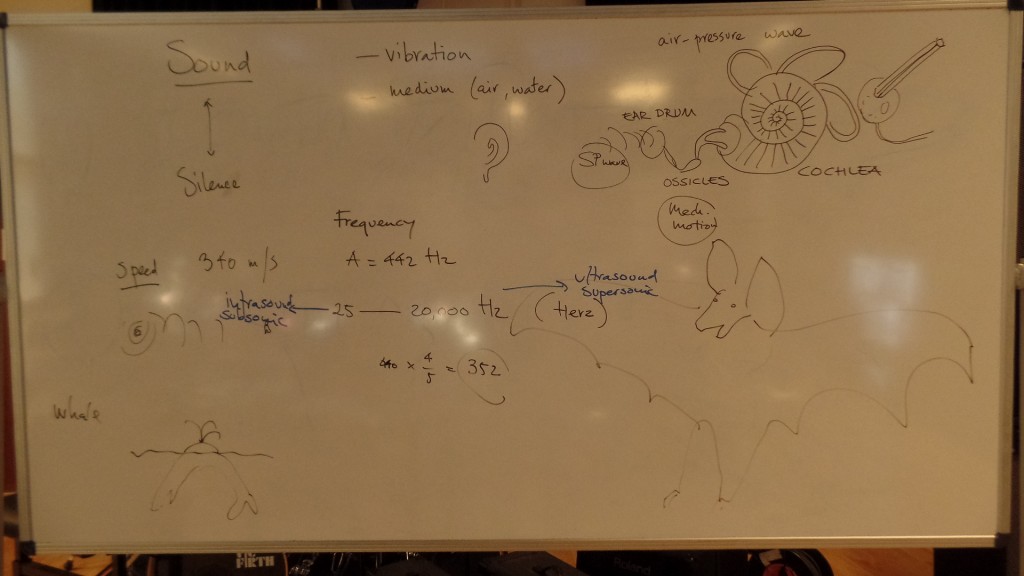 Sound
Silence
— vibration
— medium (air, water)
air-pressure wave
EAR DRUM
OSSICLES
COCHLEA
Mech.
motion
Frequency
Speed 340 m/s
A = 442 Hz
infrasound
subsonic
25 — 20,000 Hz
(Herz)
ultrasound
supersonic
440 × 4/5 = 352
Whale
Roland